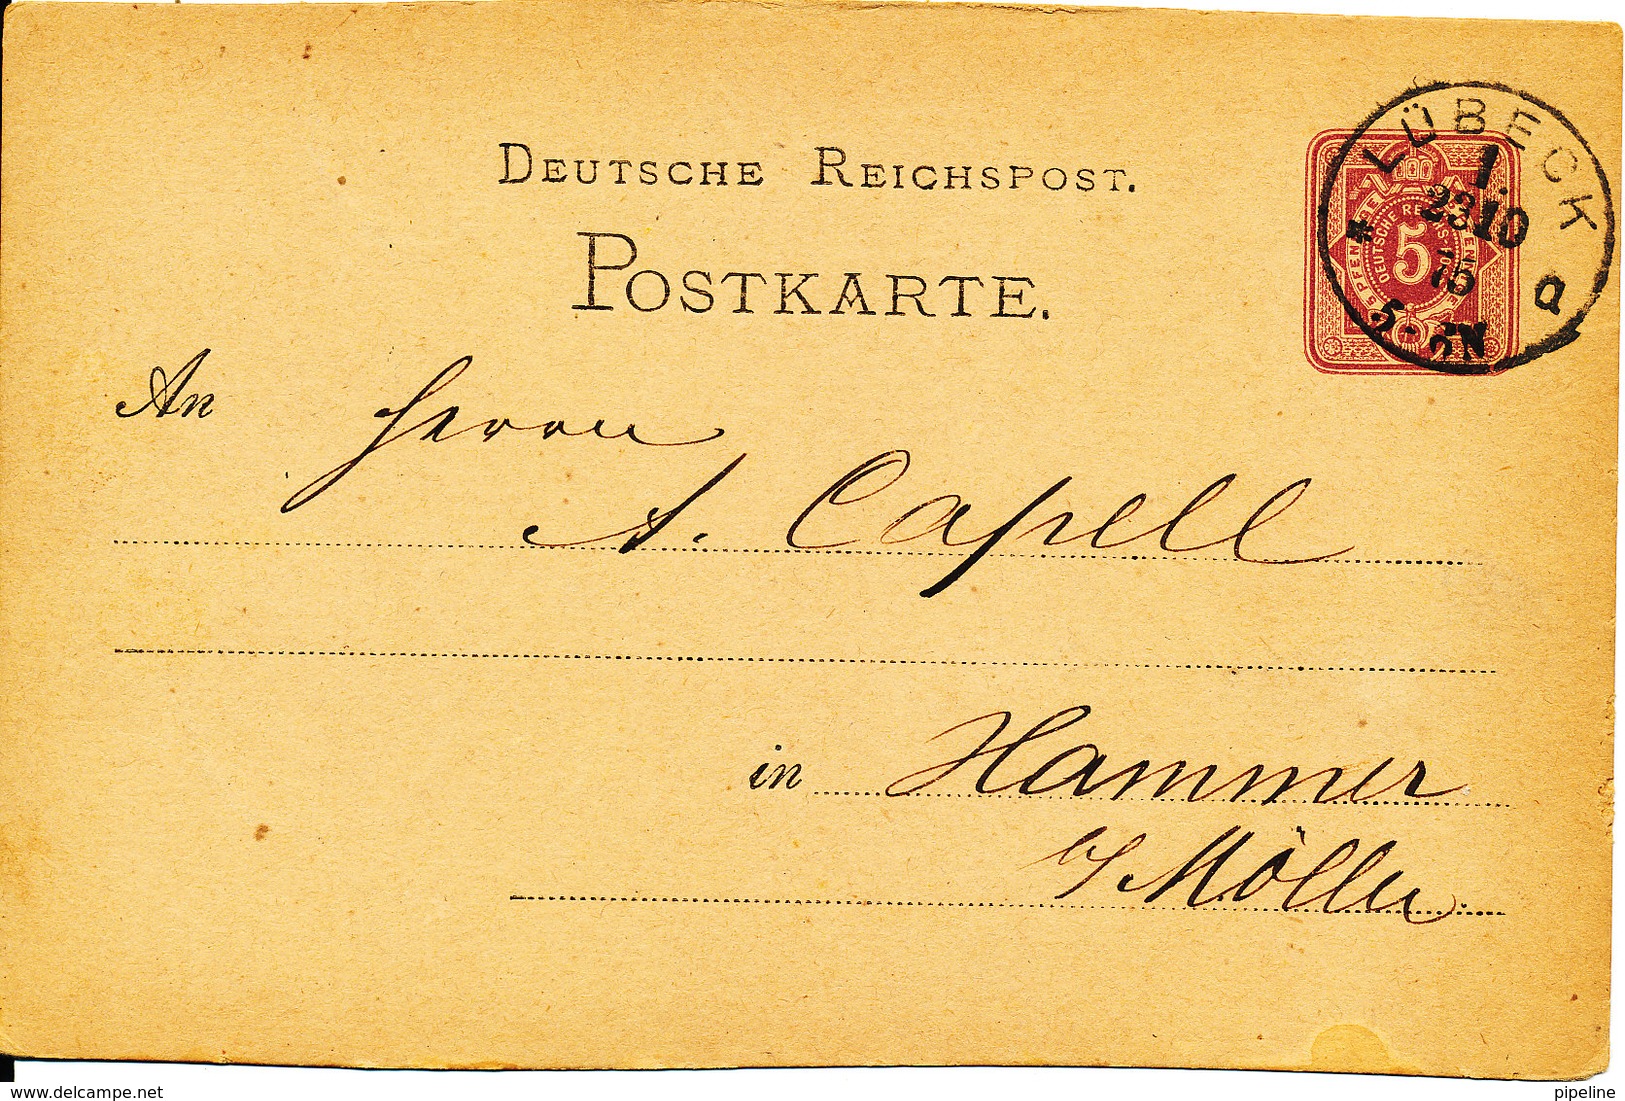 DEUTSCHE REICHSPOST.
POSTKARTE.
LÜBECK
1.
23 10
75
5-6N
a
5 PFENNIGE
DEUTSCHE REICHS-POST
5
An Herrn
A. Capell
in Hammer
b/ Mölln
©delcampe.net
pipeline